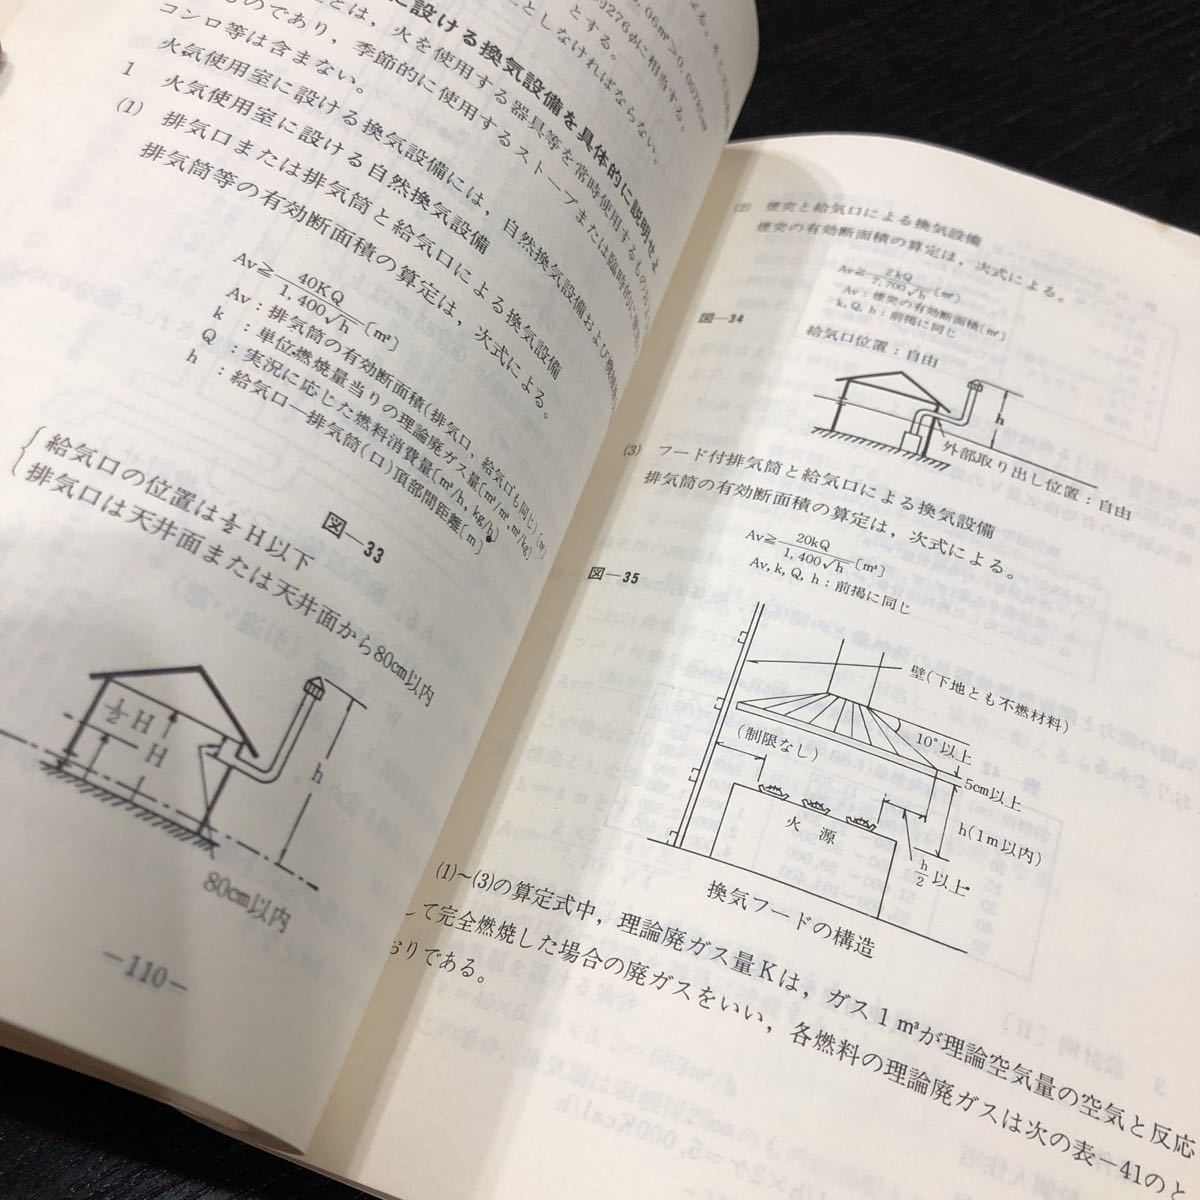 06m²>0.00785㎡
276φに相当する。
とする。
としなければならない。
に設ける換気設備を具体的に説明せよ
とは，火を使用する器具等を常時使用するもの
ものであり，季節的に使用するストーブまたは臨時的に
コンロ等は含まない。
火気使用室に設ける換気設備には，自然換気設備および機械
1 火気使用室に設ける自然換気設備
(1) 排気口または排気筒と給気口による換気設備
排気筒等の有効断面積の算定は，次式による。
Av≧40KQ/1,400√h〔㎡〕
Av：排気筒の有効断面積(排気口，給気口も同じ)〔㎡〕
k：単位燃焼量当りの理論廃ガス量〔㎥/㎥,㎥/kg〕
Q：実況に応じた燃料消費量〔㎥/h, kg/h〕
h：給気口ー排気筒(口)頂部間距離〔m〕
図—33
給気口の位置は½H以下
排気口は天井面または天井面から80cm以内
½H
H
h
80cm以内
—110—
(2) 煙突と給気口による換気設備
煙突の有効断面積の算定は，次式による。
Av≧2kQ/7,700√h〔㎡〕
Av：煙突の有効断面積〔㎡〕
k, Q, h：前掲に同じ
図—34
給気口位置：自由
h
外部取り出し位置：自由
(3) フード付排気筒と給気口による換気設備
排気筒の有効断面積の算定は，次式による。
Av≧20kQ/1,400√h〔㎡〕
Av, k, Q, h：前掲に同じ
図—35
壁(下地とも不燃材料)
10°以上
(制限なし)
5cm以上
h(1m以内)
火 源
h/2以上
換気フードの構造
(1)～(3)の算定式中，理論廃ガス量Kは，ガス1㎥が理論空気量の空気と反応
して完全燃焼した場合の廃ガスをいい，各燃料の理論廃ガスは次の表—41のと
おりである。